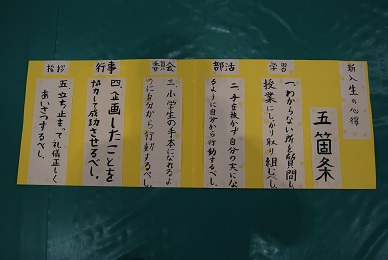 新入生の心得
五箇条
学習
一、わからない所を質問し
授業にしっかり取り組むべし。
部活
二、手を抜かず自分の力にな
るように自分から行動するべし。
委員会
三、小学生の手本になれるよ
うに自分から行動するべし。
行事
四、企画したことを
協力して成功させるべし。
挨拶
五、立ち止まって礼儀正しく
あいさつするべし。